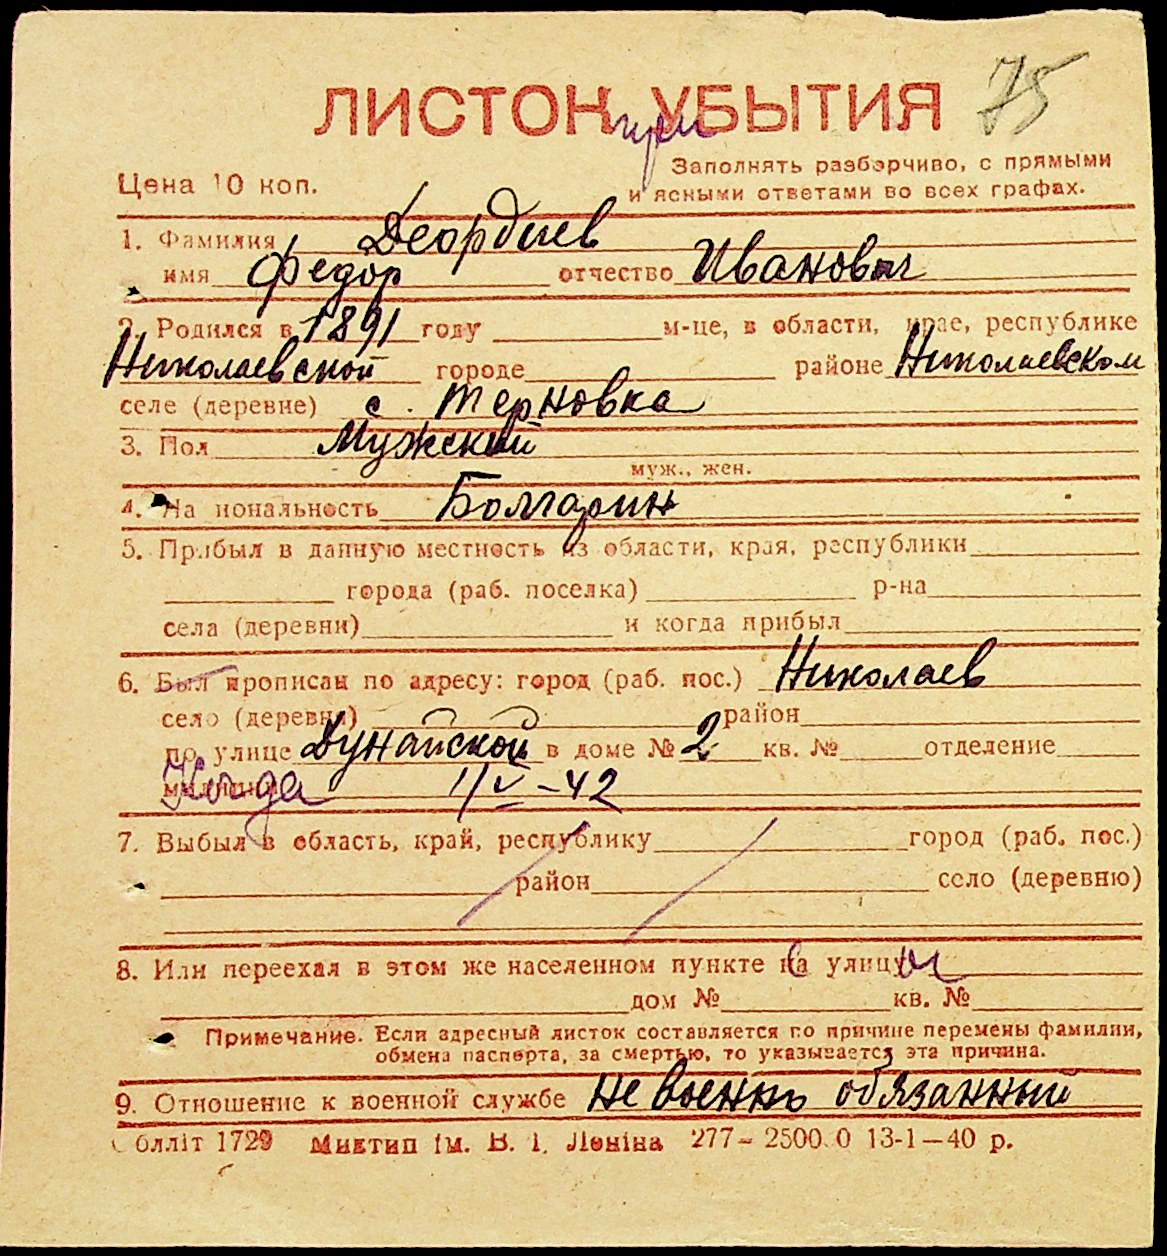 ЛИСТОК УБЫТИЯ 75
при
Заполнять разборчиво, с прямыми
Цена 10 коп. и ясными ответами во всех графах.
1. Фамилия Деордиев
имя Федор отчество Иванович
2. Родился в 1891 году м-це, в области, крае, республике
Николаевской городе районе Николаевском
селе (деревне) с. Терновка
3. Пол Мужский
муж., жен.
4. Национальность Болгарин
5. Прибыл в данную местность из области, края, республики
города (раб. поселка) р-на
села (деревни) и когда прибыл
6. Был прописан по адресу: город (раб. пос.) Николаев
село (деревня) район
по улице Дунайской в доме № 2 кв. № отделение
милиции Когда 1/V-42
7. Выбыл в область, край, республику город (раб. пос.)
район село (деревню)
8. Или переехал в этом же населенном пункте на улицу
дом № кв. №
Примечание. Если адресный листок составляется по причине перемены фамилии,
обмена паспорта, за смертью, то указывается эта причина.
9. Отношение к военной службе не военнь обязанный
Облліт 1729 Миктип ім. В. І. Леніна 277–2500.0 13-1–40 р.